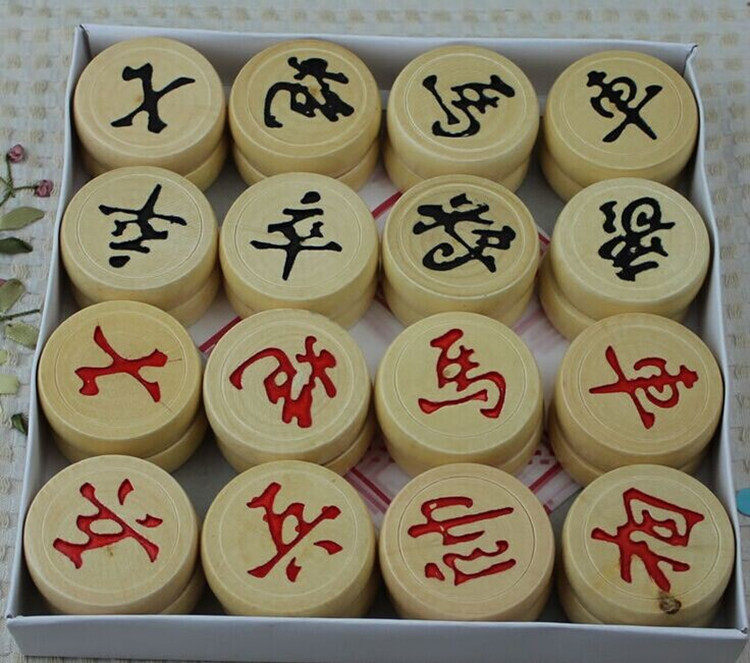 士 炮 馬 車
卒 卒 將 象
士 炮 馬 車
兵 兵 帥 相